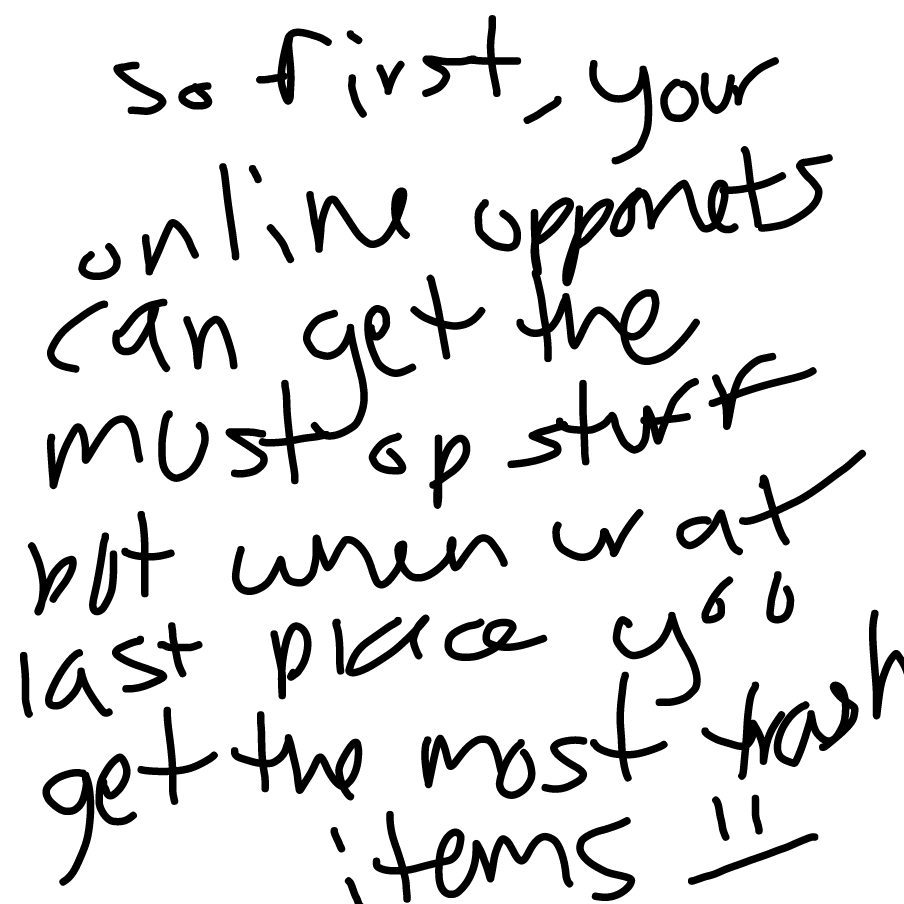 so first, your
online opponets
can get the
must op stuff
but when ur at
last place you
get the most trash
items !!